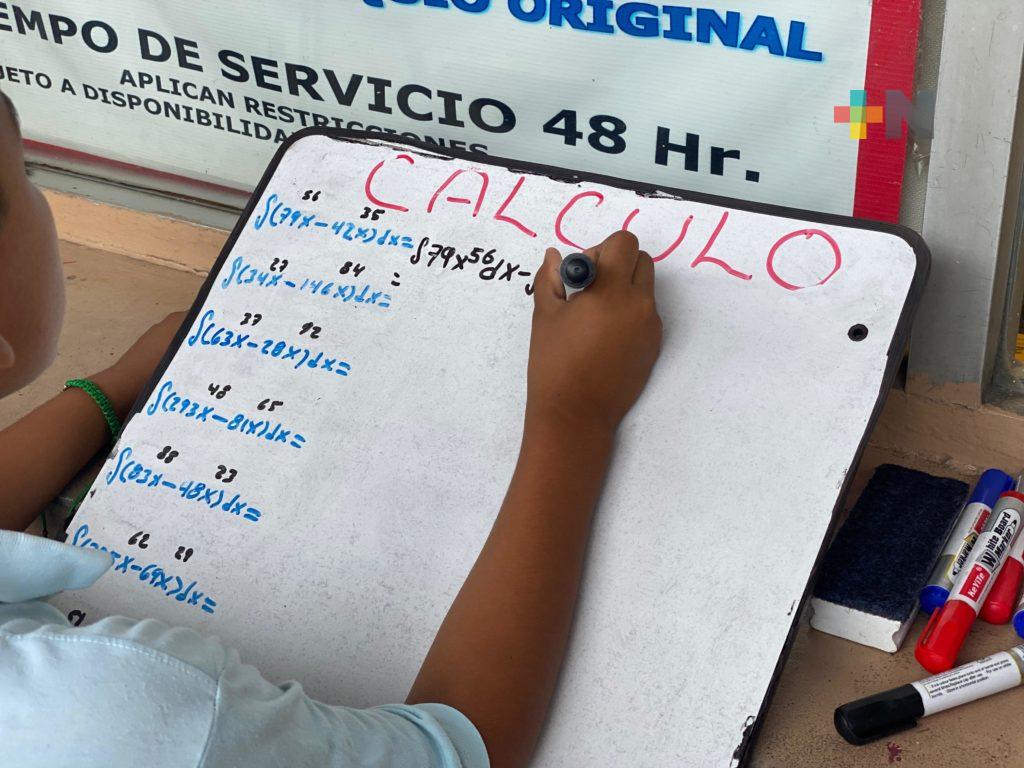 ORIGINAL
DE SERVICIO 48 Hr.
APLICAN RESTRICCIONES
A DISPONIBILIDA
N
CALCULO
∫(79x⁵⁶-42x³⁵)dx= ∫79x⁵⁶dx-
∫(34x²³-146x⁸⁴)dx= =
∫(63x³⁷-28x⁹²)dx=
∫(293x⁴⁸-81x⁶⁵)dx=
∫(83x⁸⁸-48x²³)dx=
x⁶²-69x²⁹)dx=
White Board
Marker
KeYiTe